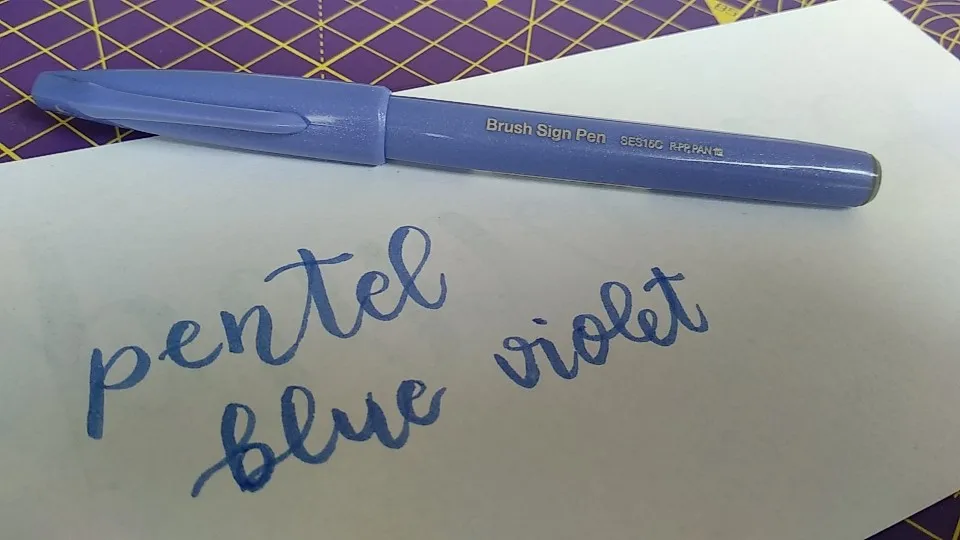 Brush Sign Pen SES15C P.PP,PAN
pentel
blue violet